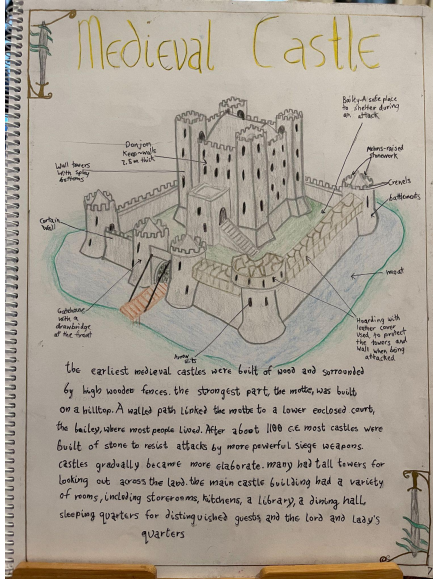 Medieval Castle
Bailey-A safe place
to shelter during
an attack
Donjon
Keep-walls
2.5m thick
Merlons-raised
stonework
Wall towers
with splay
bottoms
Crenels
battlements
Curtain
Wall
moat
Gatehouse
with a
drawbridge
at the front
Hoarding with
leather cover
Used to protect
the towers and
wall when being
attacked
Arrow
slits
the earliest medieval castles were built of wood and surrounded
by high wooden fences. the strongest part, the motte, was built
on a hilltop. A walled path linked the motte to a lower enclosed court,
the bailey, where most people lived. After about 1100 c.e most castles were
built of stone to resist attacks by more powerful siege weapons.
castles gradually became more elaborate. many had tall towers for
looking out across the land. the main castle building had a variety
of rooms, including storerooms, kitchens, a library, a dining hall
sleeping quarters for distinguished guests, and the lord and lady's
quarters